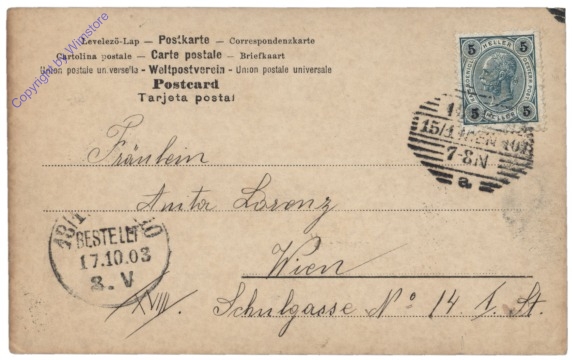 Levelezö-Lap — Postkarte — Correspondenzkarte
Cartolina postale — Carte postale — Briefkaart
Union postale universella - Weltpostverein - Union postale universale
Postcard
Tarjeta postal
Copyright by Wimstore
5 HELLER 5
5 HELLER 5
7-8N
a
Fräulein
Anita Lorenz
Wien
XVIII. Schulgasse No 14 I. St.
BESTELLT
17.10.03
8.V